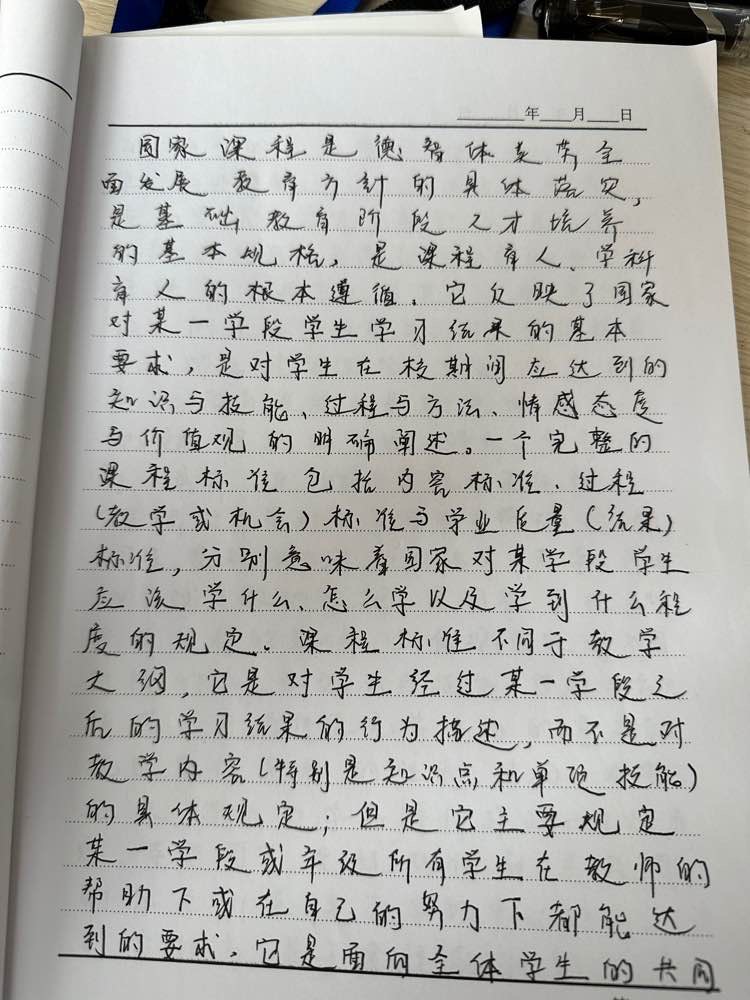 年 月 日
国家课程是德智体美劳全
面发展教育方针的具体落实,
是基础教育阶段人才培养
的基本规格,是课程育人、学科
育人的根本遵循。它反映了国家
对某一学段学生学习结果的基本
要求,是对学生在校期间应达到的
知识与技能、过程与方法、情感态度
与价值观的明确阐述。一个完整的
课程标准包括内容标准、过程
(教学或机会)标准与学业质量(结果)
标准,分别意味着国家对某学段学生
应该学什么、怎么学以及学到什么程
度的规定。课程标准不同于教学
大纲,它是对学生经过某一学段之
后的学习结果的行为描述,而不是对
教学内容(特别是知识点和单项技能)
的具体规定;但是它主要规定
某一学段或年级所有学生在教师的
帮助下或在自己的努力下都能达
到的要求。它是面向全体学生的共同